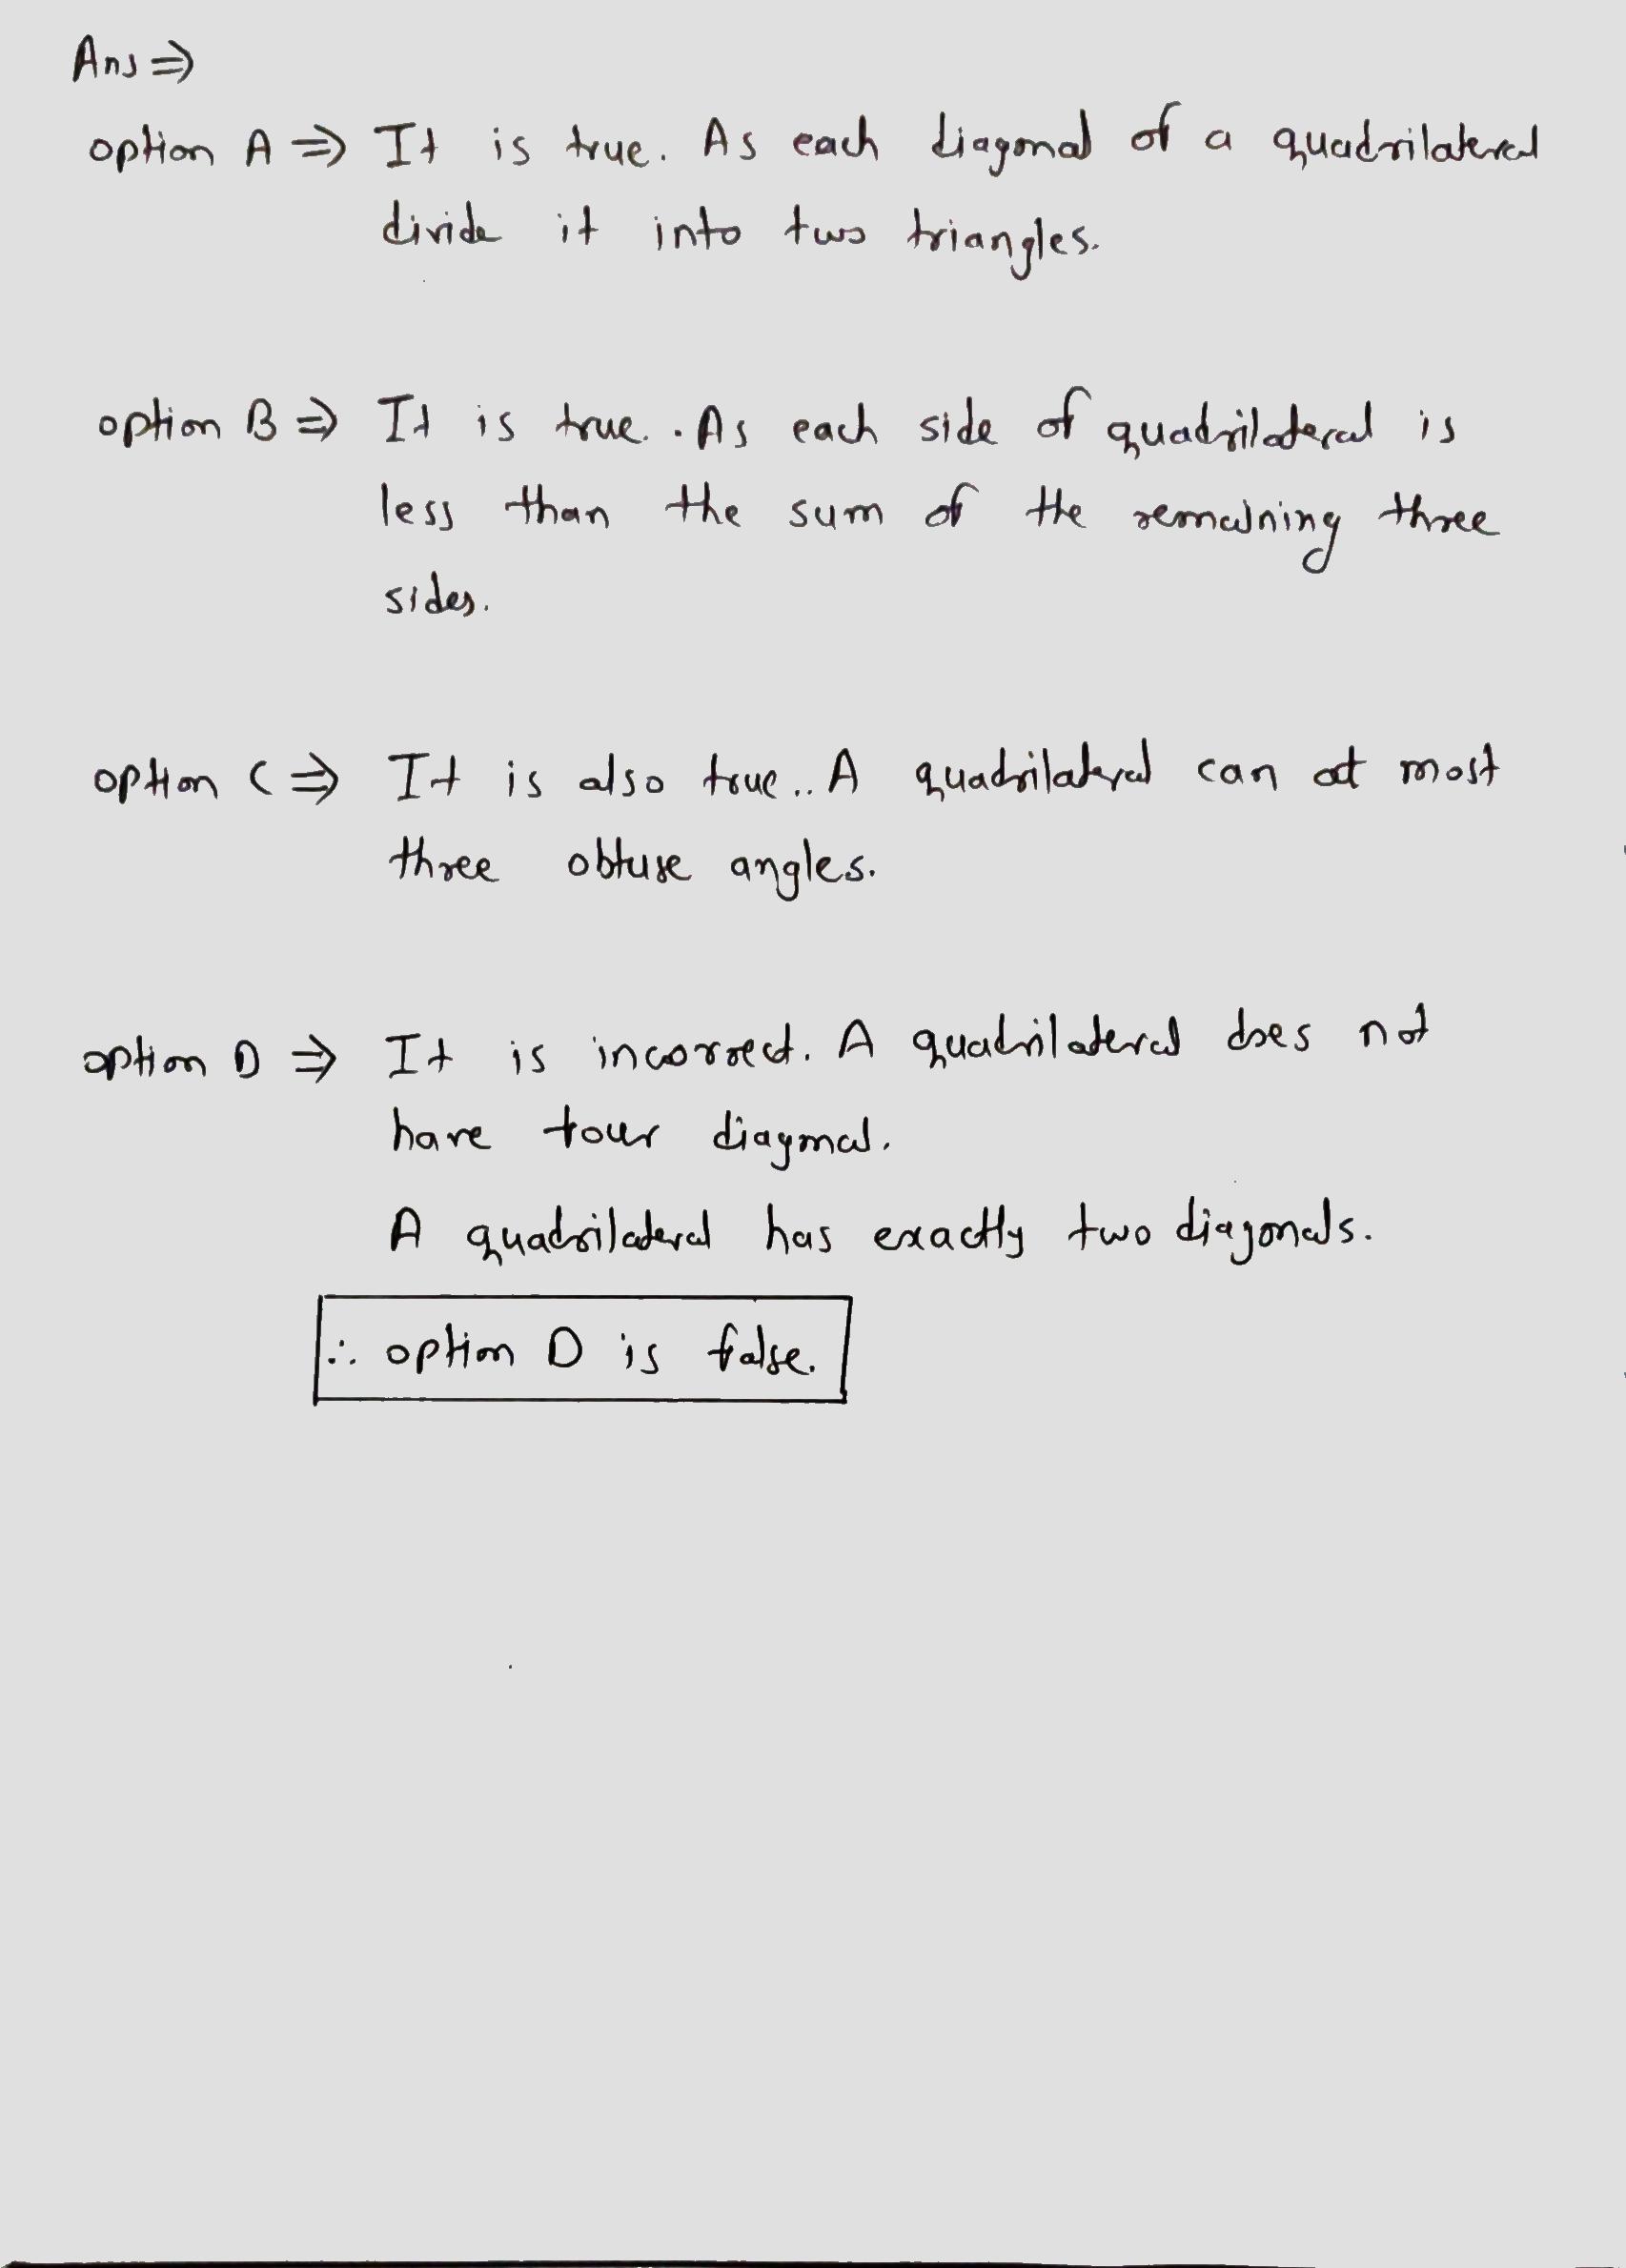 Ans ⇒
option A ⇒ It is true. As each diagonal of a quadrilateral
divide it into two triangles.
option B ⇒ It is true. . As each side of quadrilateral is
less than the sum of the remaining three
sides.
option C ⇒ It is also true.. A quadrilateral can at most
three obtuse angles.
option D ⇒ It is incorrect. A quadrilateral does not
have four diagonal.
A quadrilateral has exactly two diagonals.
∴ option D is false.